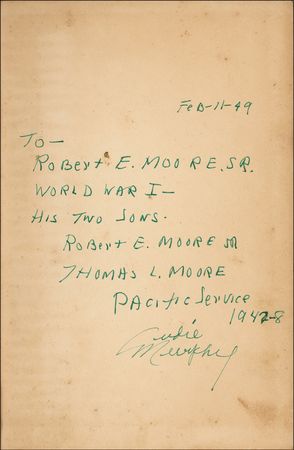 Feb-11-49
To—
Robert E. Moore, Sr.
World War I—
His Two Sons.
Robert E. Moore JR
Thomas L. Moore
Pacific Service
1942-8
Audie
Murphy